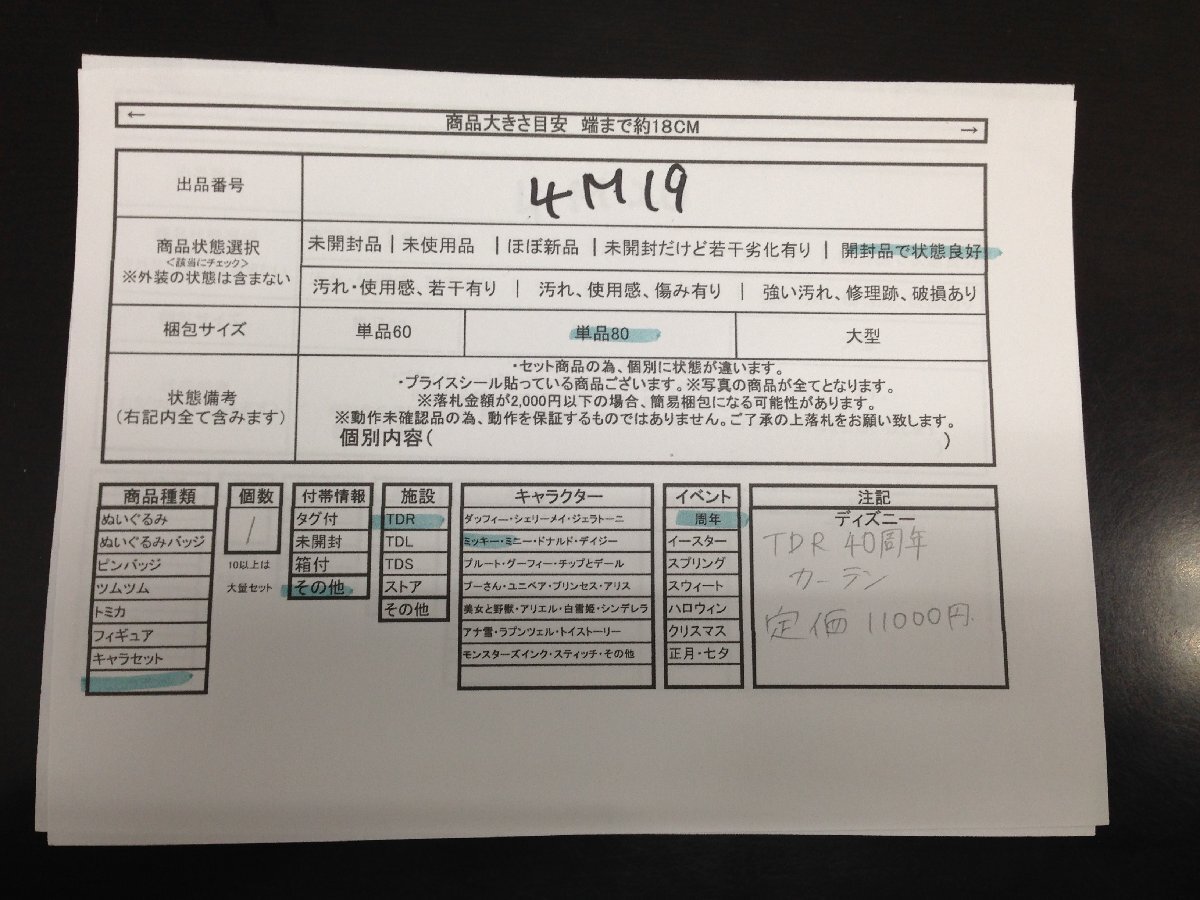 ← 商品大きさ目安 端まで約18CM →
出品番号 4M19
商品状態選択
<該当にチェック>
※外装の状態は含まない
未開封品 | 未使用品 | ほぼ新品 | 未開封だけど若干劣化有り | 開封品で状態良好
汚れ・使用感、若干有り | 汚れ、使用感、傷み有り | 強い汚れ、修理跡、破損あり
梱包サイズ 単品60 単品80 大型
状態備考
(右記内全て含みます)
・セット商品の為、個別に状態が違います。
・プライスシール貼っている商品ございます。※写真の商品が全てとなります。
※落札金額が2,000円以下の場合、簡易梱包になる可能性があります。
※動作未確認品の為、動作を保証するものではありません。ご了承の上落札をお願い致します。
個別内容( )
商品種類
ぬいぐるみ
ぬいぐるみバッジ
ピンバッジ
ツムツム
トミカ
フィギュア
キャラセット
個数
1
10以上は
大量セット
付帯情報
タグ付
未開封
箱付
その他
施設
TDR
TDL
TDS
ストア
その他
キャラクター
ダッフィー・シェリーメイ・ジェラトーニ
ミッキー・ミニー・ドナルド・デイジー
プルート・グーフィー・チップとデール
プーさん・ユニベア・プリンセス・アリス
美女と野獣・アリエル・白雪姫・シンデレラ
アナ雪・ラプンツェル・トイストーリー
モンスターズインク・スティッチ・その他
イベント
周年
イースター
スプリング
スウィート
ハロウィン
クリスマス
正月・七夕
注記
ディズニー
TDR 40周年
カーテン
定価 11000円